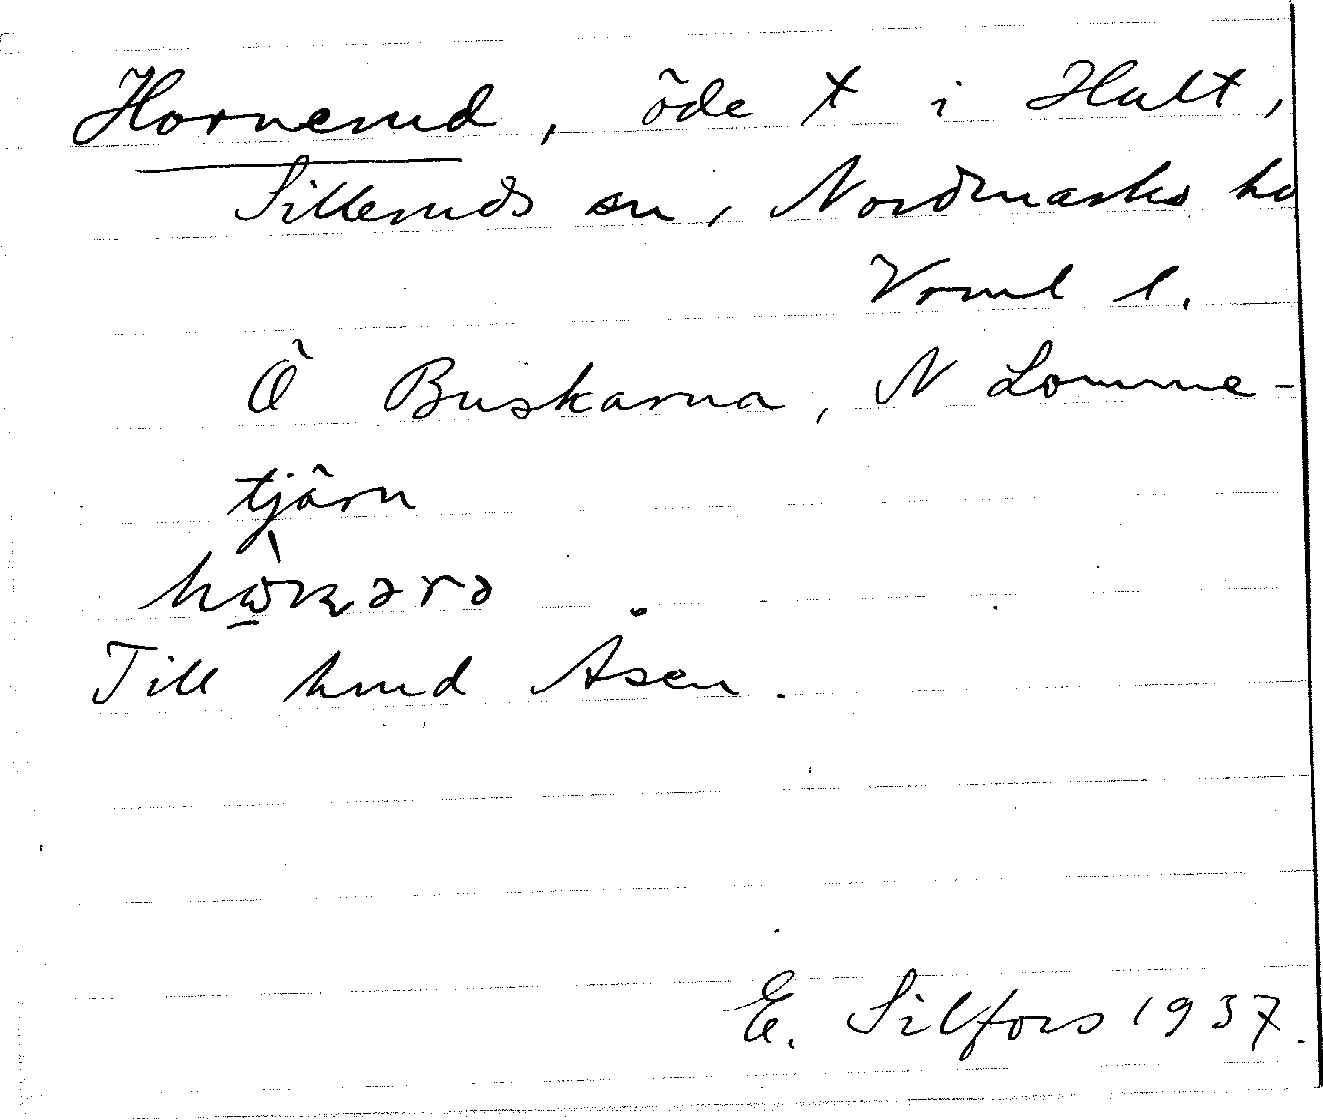 Hornerud, öde t i Hult,
Silleruds sn, Nordmarks hd
Vrml l.
Ö Buskarna, N Lomme-
tjärn
Till hmd Åsen.
E. Silfors 1937.